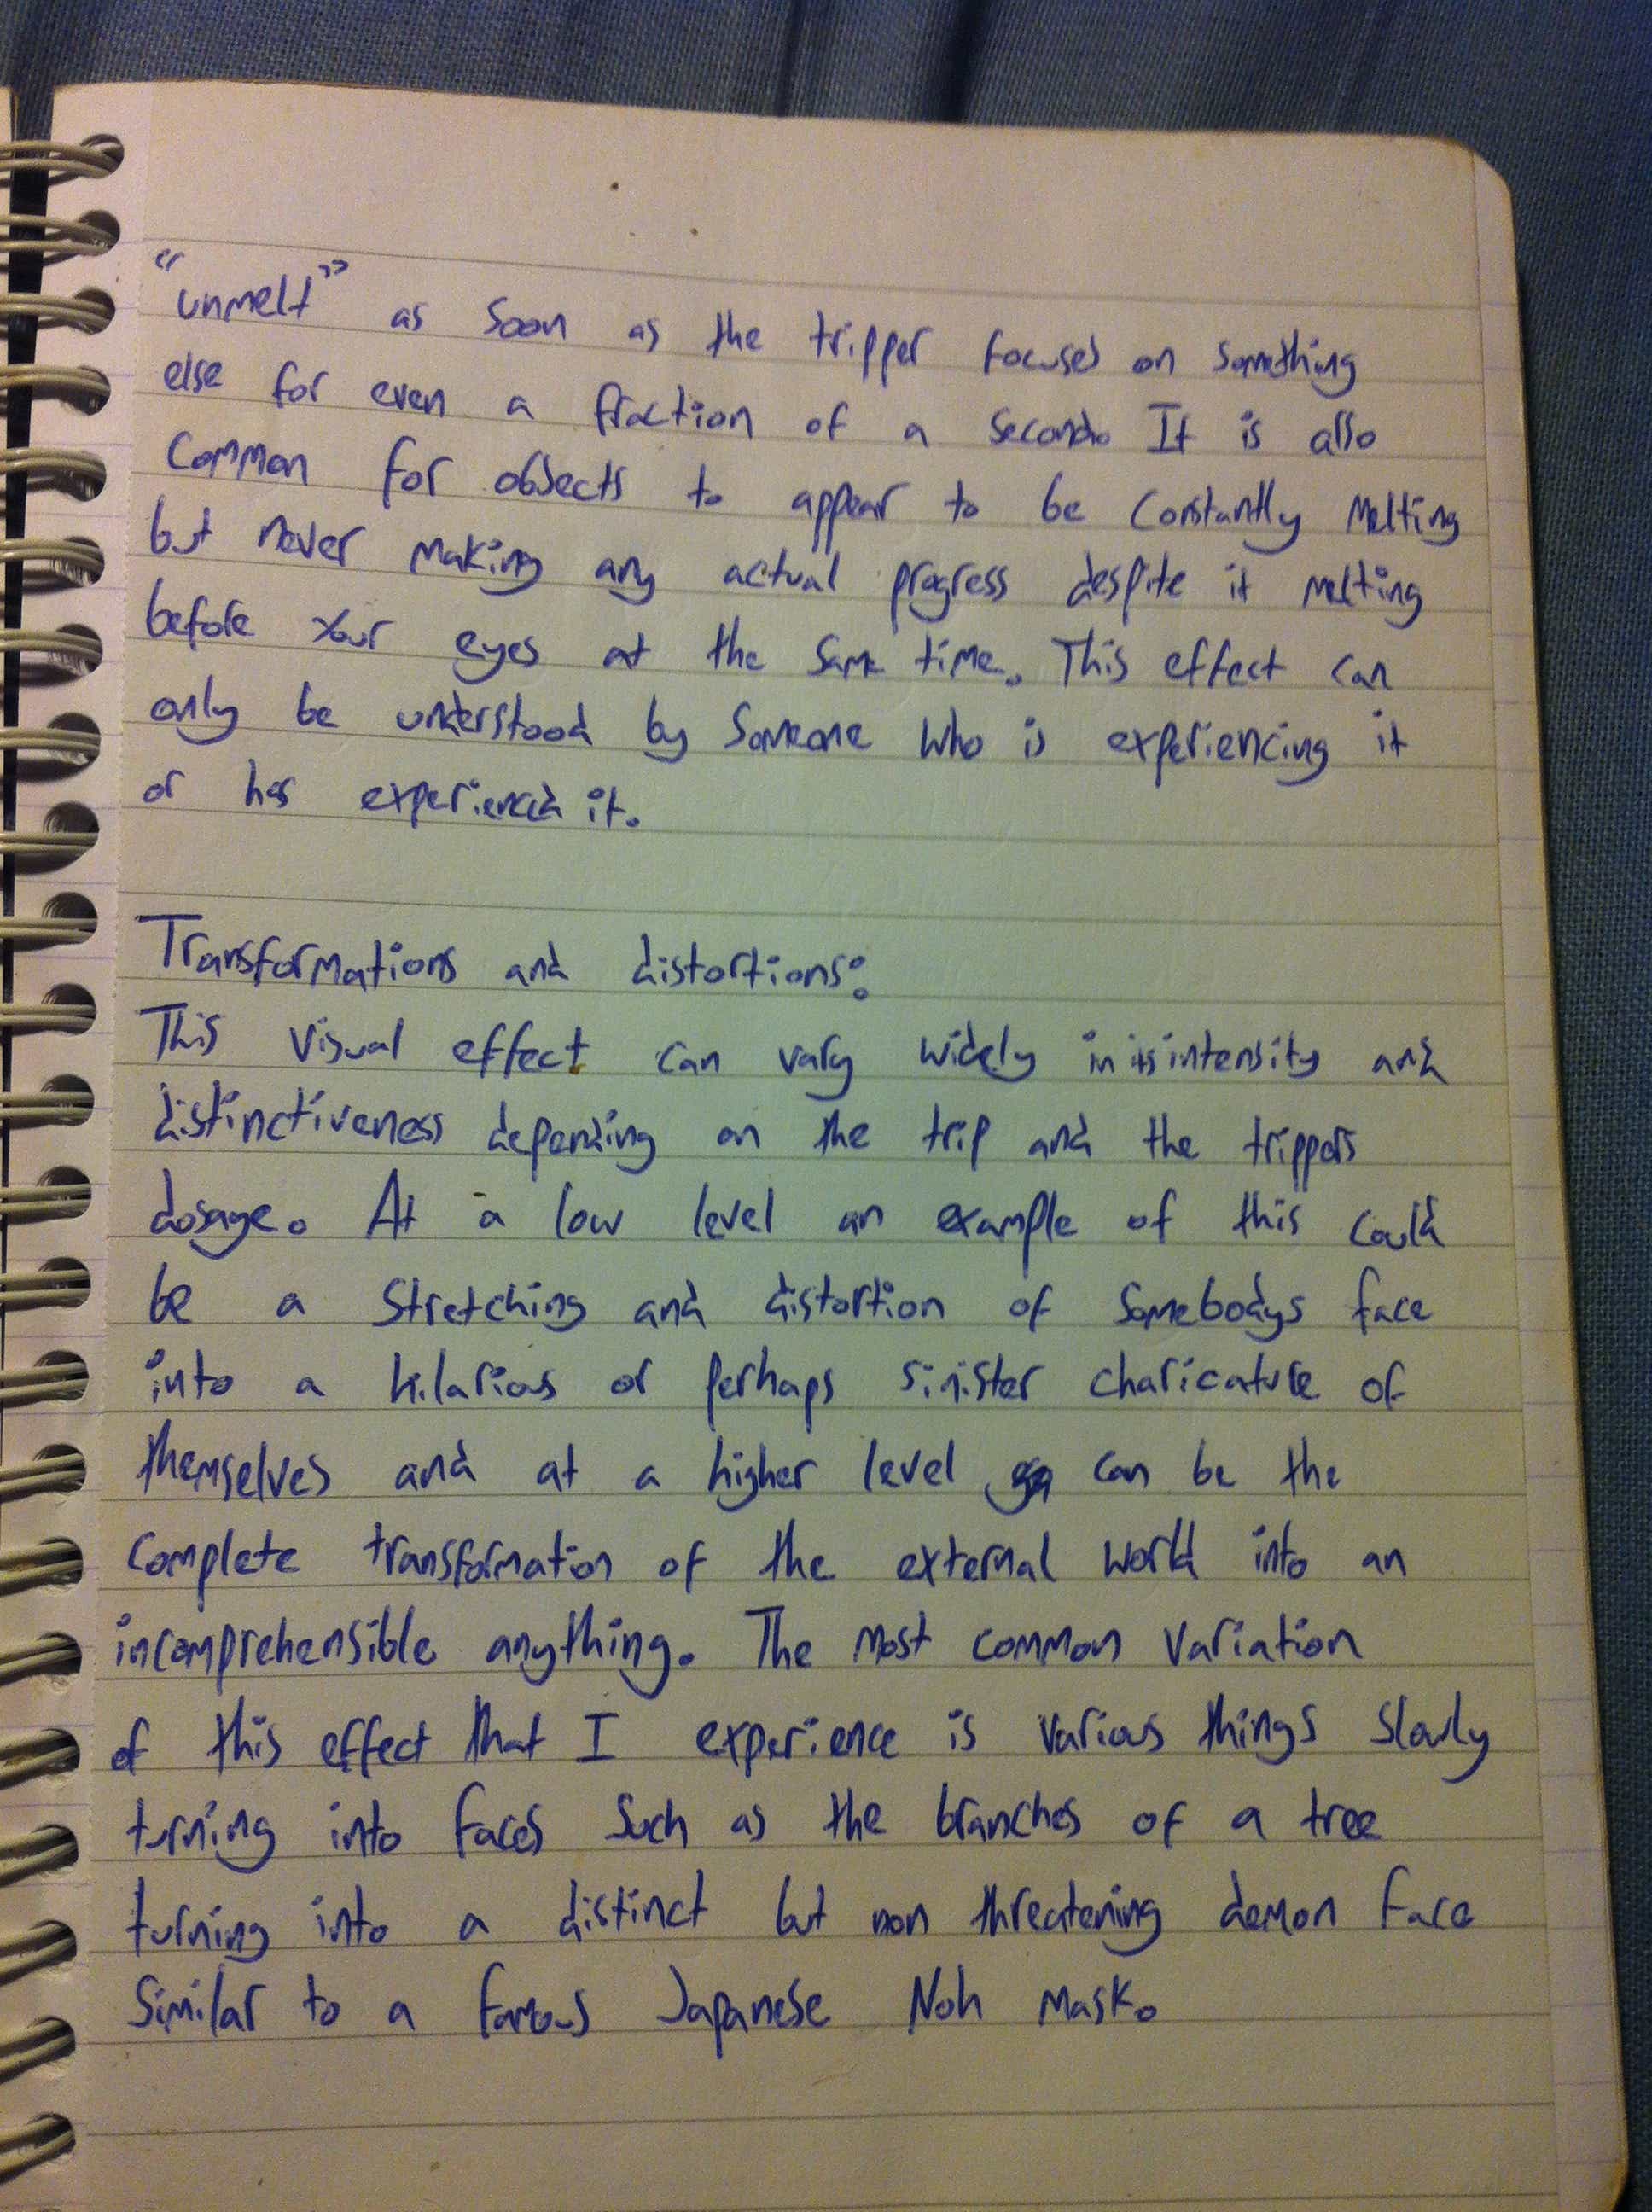 "unmelt" as soon as the tripper focuses on something
else for even a fraction of a second. It is also
common for objects to appear to be constantly melting
but never making any actual progress despite it melting
before your eyes at the same time. This effect can
only be understood by someone who is experiencing it
or has experienced it.
Transformations and distortions:
This visual effect can vary widely in its intensity and
distinctiveness depending on the trip and the trippers
dosage. At a low level an example of this could
be a stretching and distortion of somebodys face
into a hilarious or perhaps sinister charicature of
themselves and at a higher level can be the
complete transformation of the external world into an
incomprehensible anything. The most common variation
of this effect that I experience is various things slowly
turning into faces such as the branches of a tree
turning into a distinct but non threatening demon face
similar to a famous Japanese Noh mask.